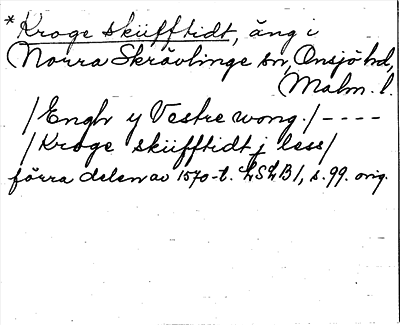 * Kroge skiifftidt, äng i
Norra Skrävlinge sn, Onsjö hd,
Malm. l.
/Engh y Vestre wong./----
/Kroge skiifftidt j less/
förra delen av 1570-t. LSLB1, s. 99. orig.